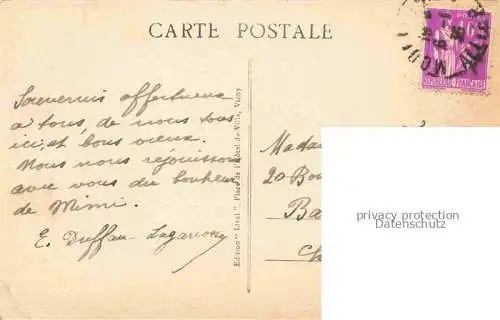 CARTE POSTALE
Souvenirs affectueux
à tous de nous tous
ici, et bons vœux.
Nous nous réjouissons
avec vous du bonheur
de Mimi.
E. Duffau-Lagarrosse
Edition "Lival" Place de l'Hôtel-de-Ville, Vichy
Madam
20 Bou
Ba
Ch
privacy protection
Datenschutz
40
REPUBLIQUE FRANCAISE